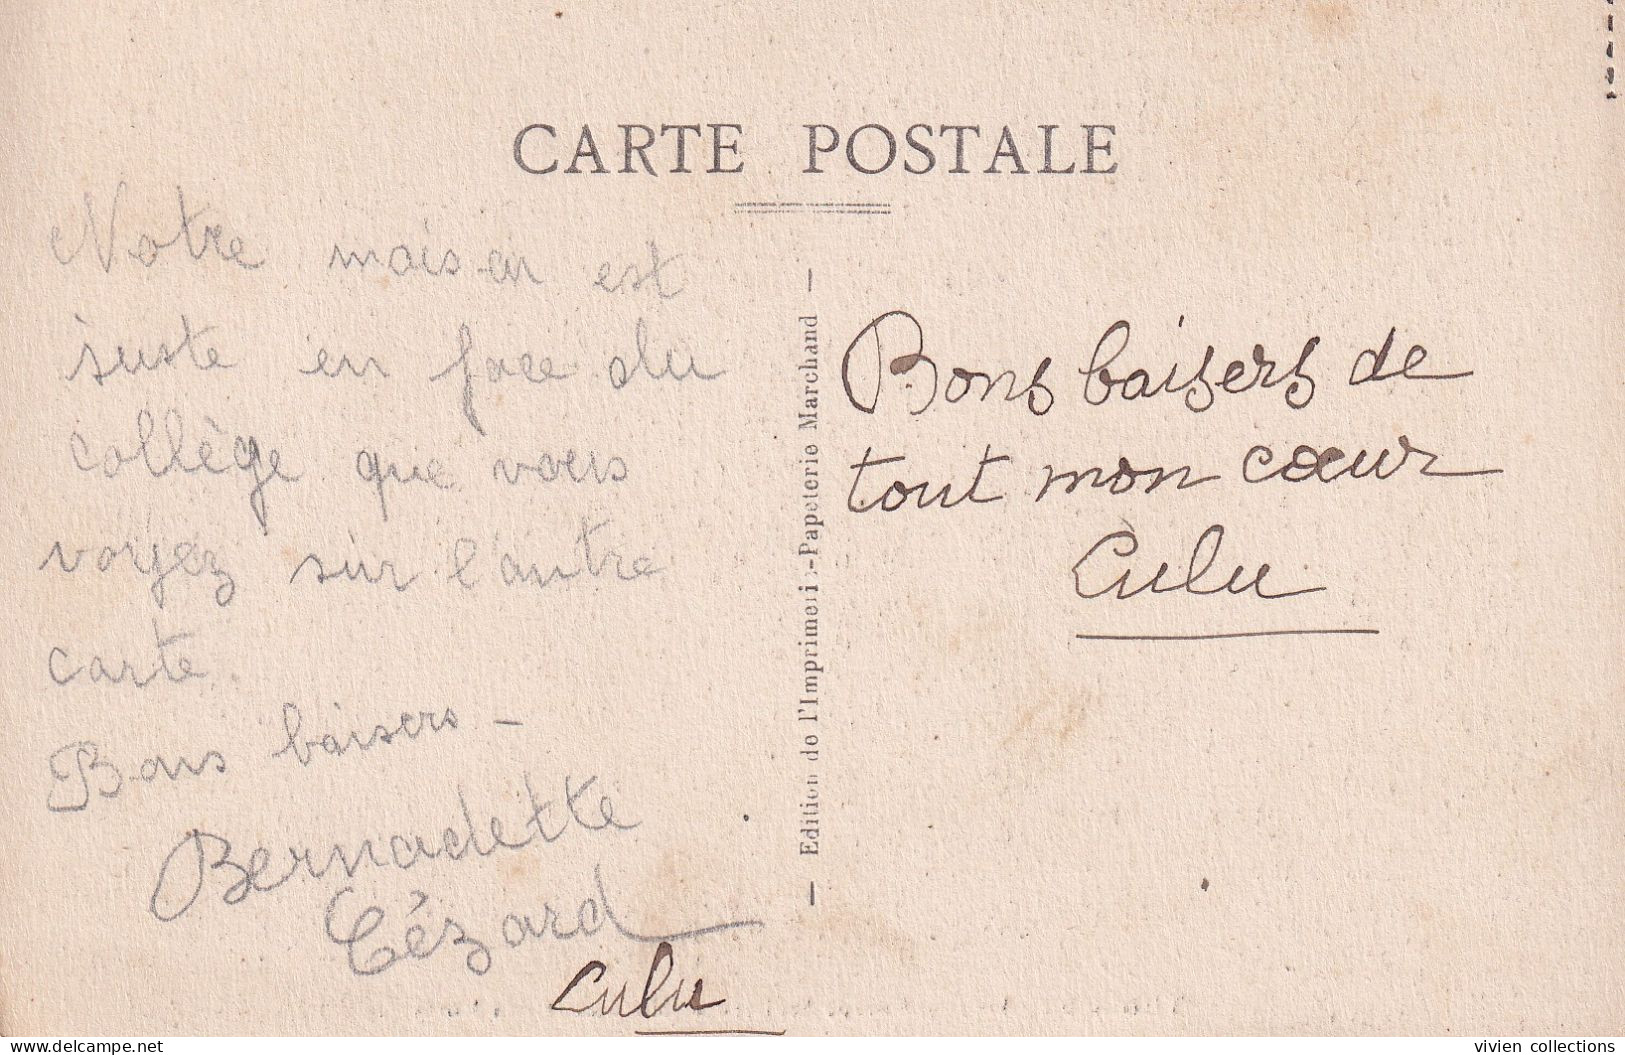 CARTE POSTALE
Notre maison est
juste en face du
collège que vous
voyez sur l'autre
carte.
Bons baisers -
Bernadette
Cézard
Lulu
— Edition de l'Imprimeri -Papeterie Marchand —
Bons baisers de
tout mon cœur
Lulu
vivien collections